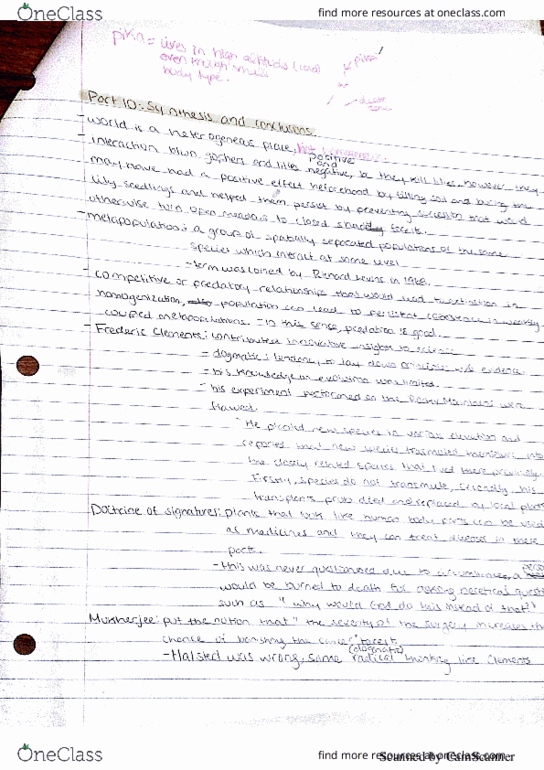 OneClass
find more resources at oneclass.com
pika = lives in high altitude (cold)
even though small
body type.
pika
Part 10: Synthesis and conclusions
- world is a heterogeneous place, not homogeneous.
positive
and
- interaction btwn gophers and lilies negative, bc they kill lilies. however they
may have had a positive effect by tilling soil and
lily seedlings and helped them persist by preventing succession that would
otherwise turn open meadows to closed forests.
- metapopulation: a group of spatially seperated populations of the same
species which interact at some level
- term was coined by Richard Levins in 1968.
- competitive or predatory relationships that would lead to extinction in
homogenization, population can lead to persistent coexistence in weakly
- coupled metapopulations. - in this sense, predation is good.
- Frederic Clements: contributed innovative insights to
= dogmatic: tendency to lay down w/o evidence
= his knowledge on evolution was limited.
- his experiment performed on the Rocky Mountains were
flawed.
- He placed new species in various elevation and
reported that new species transmuted
the closely related species that lived there previously.
Firstly, species do not transmute, secondly his
transplants died and replaced by local plants
Doctrine of signatures: plants that look like human body parts can be used
as medicines and they can treat diseases in these
parts.
- this was never questioned due to circumstances, a
would be burned to death for asking heretical questions
such as "why would God do this instead of that"
Mukherjee: put the notion that "the severity of the surgery increases the
chance of banishing the cancer" forest.
(dogmatic)
- Halsted was wrong, same radical thinking like Clements
OneClass
find more resources at oneclass.com
Scanned by CamScanner